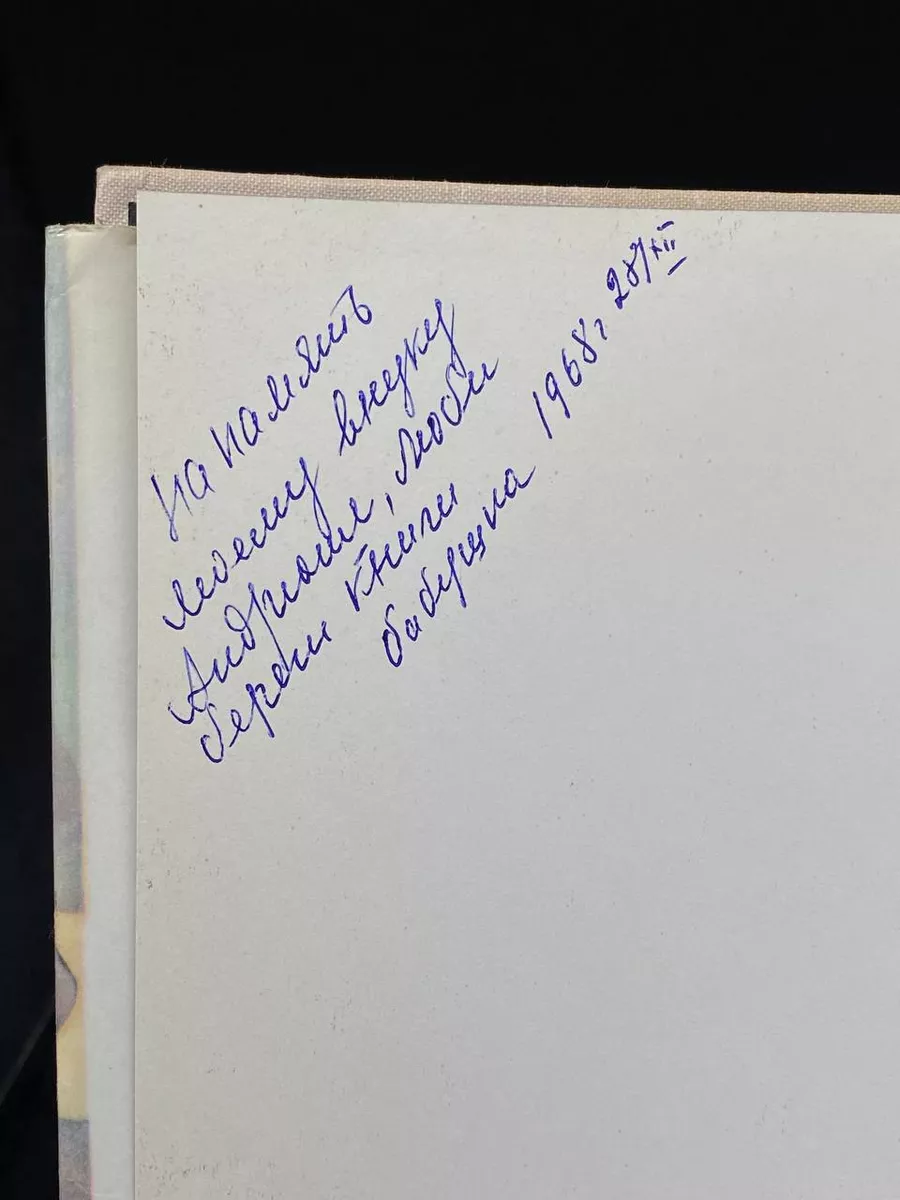 На память
моему внуку
Андрюше, люби
береги книги
бабушка 1968г 28/XII